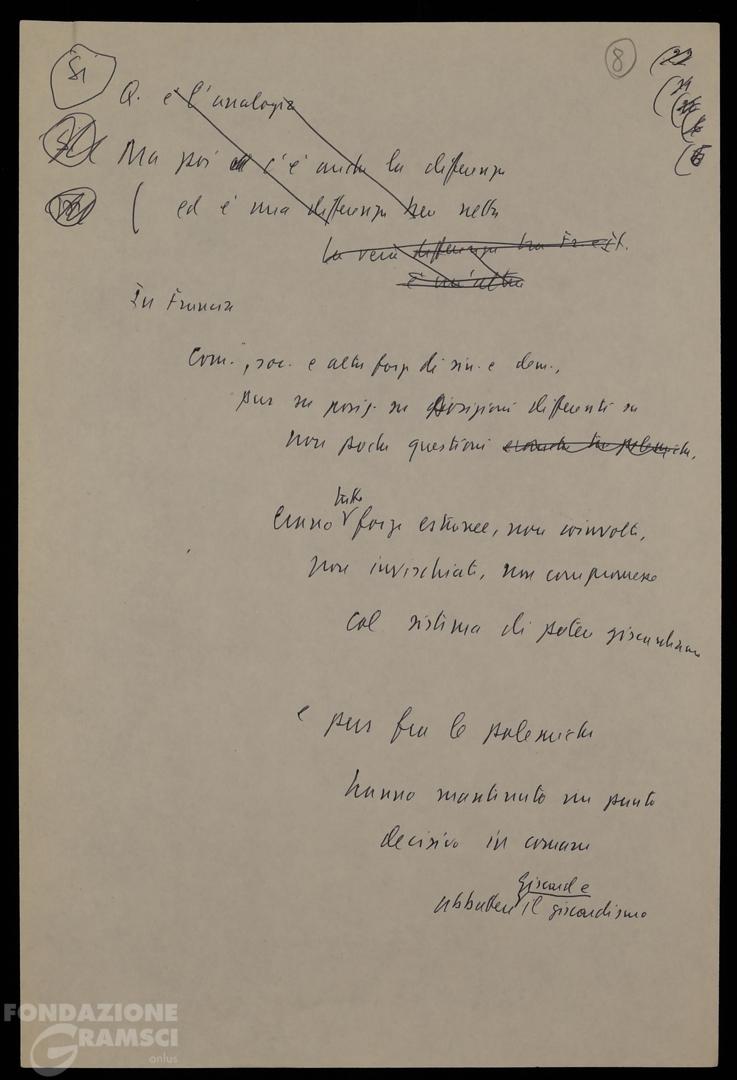 Sì
8
(22
Q. è l'analogia
Ma poi c'è anche la differenza
( ed è una differenza ben netta
La vera differenza tra Fr. e It.
È un'altra
In Francia
Com., soc. e altre forze di sin. e dem.,
pur su posiz. su posizioni differenti su
non poche questioni
tutte
Erano forze estranee, non coinvolte,
non invischiate, non compromesse
col sistema di potere giscardiano
e pur fra le polemiche
hanno mantenuto un punto
decisivo in comune
Giscard e
abbattere il giscardismo
FONDAZIONE
GRAMSCI
onlus